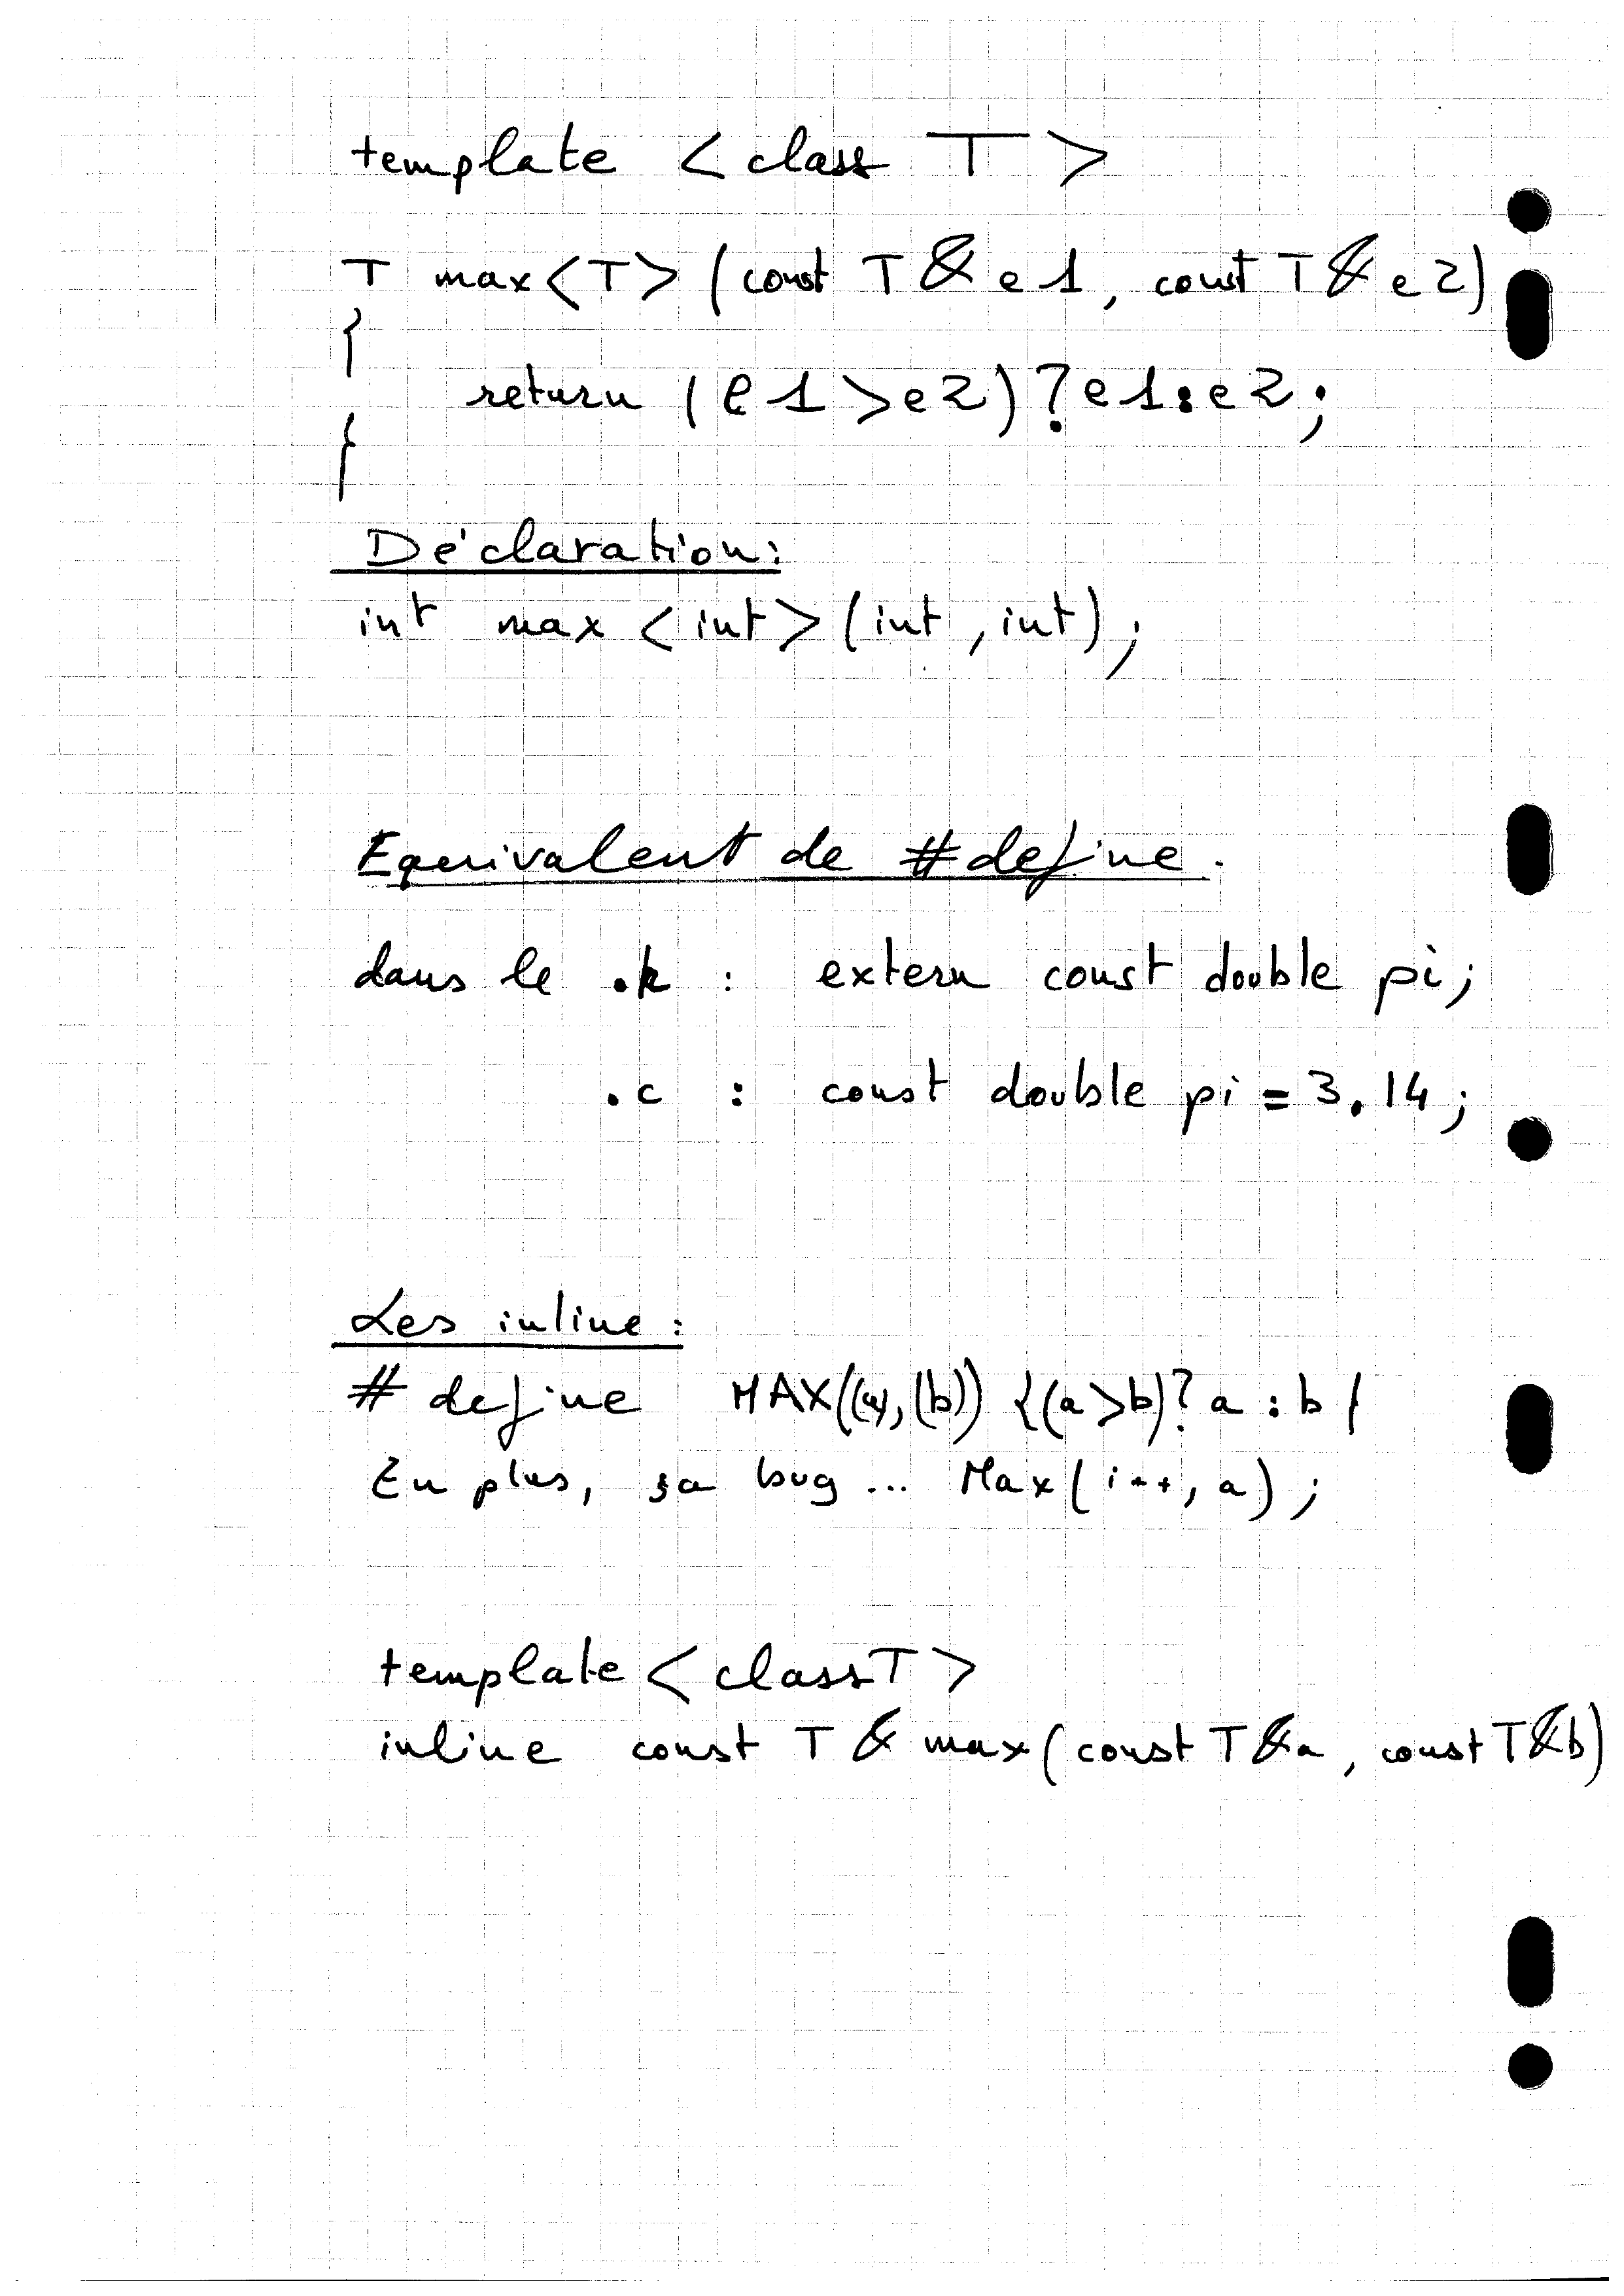 template < class T >
T max<T> (const T & e1, const T & e2)
{
return (e1 > e2) ? e1 : e2 ;
}
Déclaration :
int max <int> (int , int) ;
Equivalent de #define .
dans le .h : extern const double pi ;
.c : const double pi = 3.14 ;
Les inline :
# define MAX((a), (b)) {(a > b) ? a : b }
En plus, ça bug ... Max ( i++, a) ;
template < class T >
inline const T & max (const T & a , const T & b)